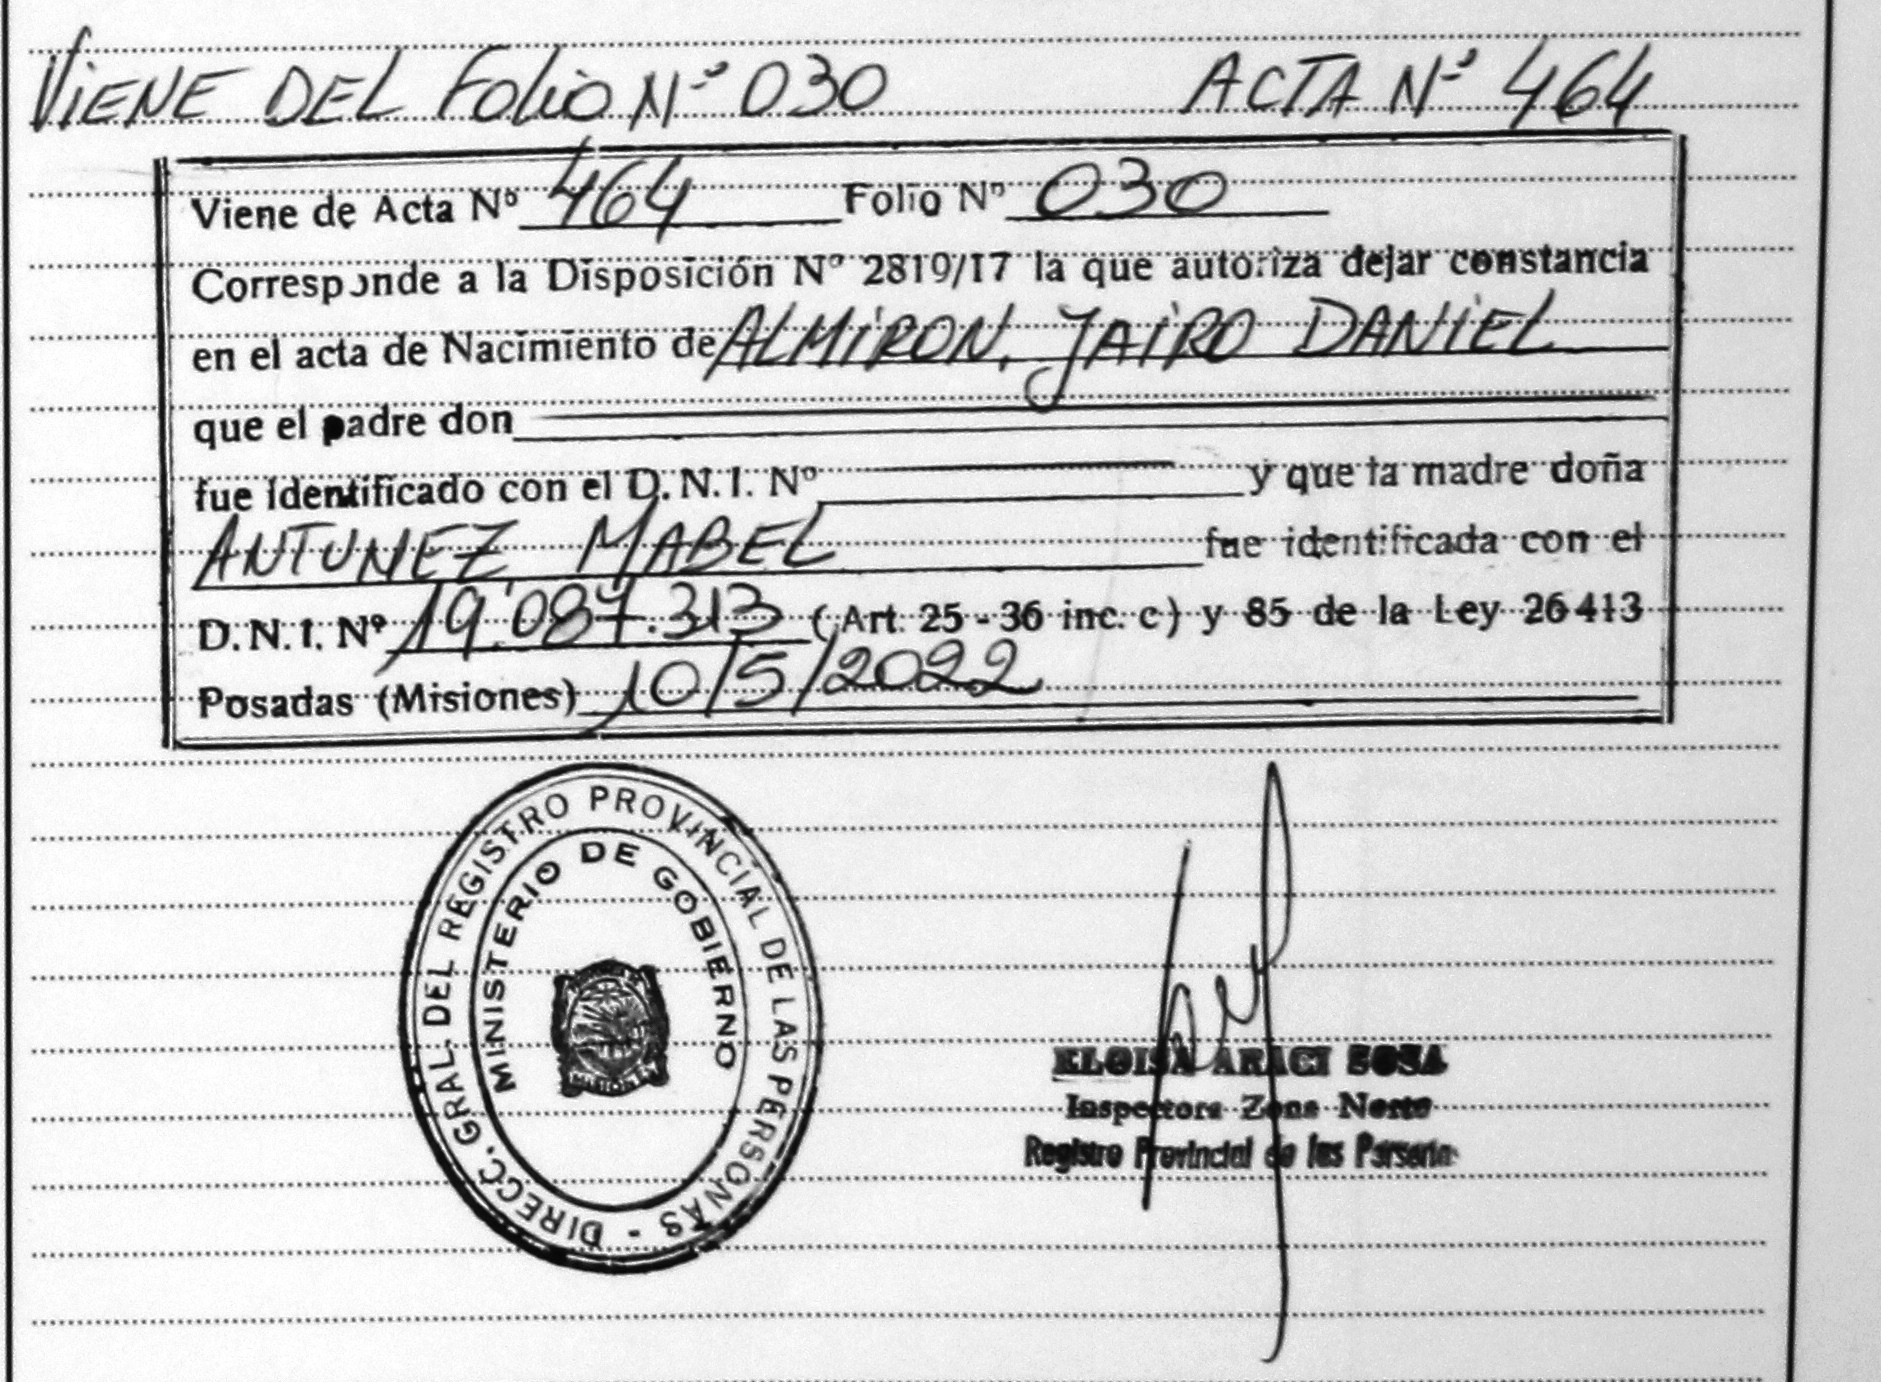 VIENE DEL FOLIO Nº 030 ACTA Nº 464
Viene de Acta Nº 464 Folio Nº 030
Corresponde a la Disposición Nº 2819/17 la que autoriza dejar constancia
en el acta de Nacimiento de ALMIRON, JAIRO DANIEL
que el padre don
fue identificado con el D.N.I. Nº y que la madre doña
ANTUNEZ MABEL fue identificada con el
D.N.I. Nº 19.087.313 (Art. 25 - 36 inc. c) y 85 de la Ley 26413
Posadas (Misiones) 10/5/2022
DIRECC. GRAL. DEL REGISTRO PROVINCIAL DE LAS PERSONAS -
MINISTERIO DE GOBIERNO
MISIONES
ELOISA ARACI SOSA
Inspectora Zona Norte
Registro Provincial de las Personas